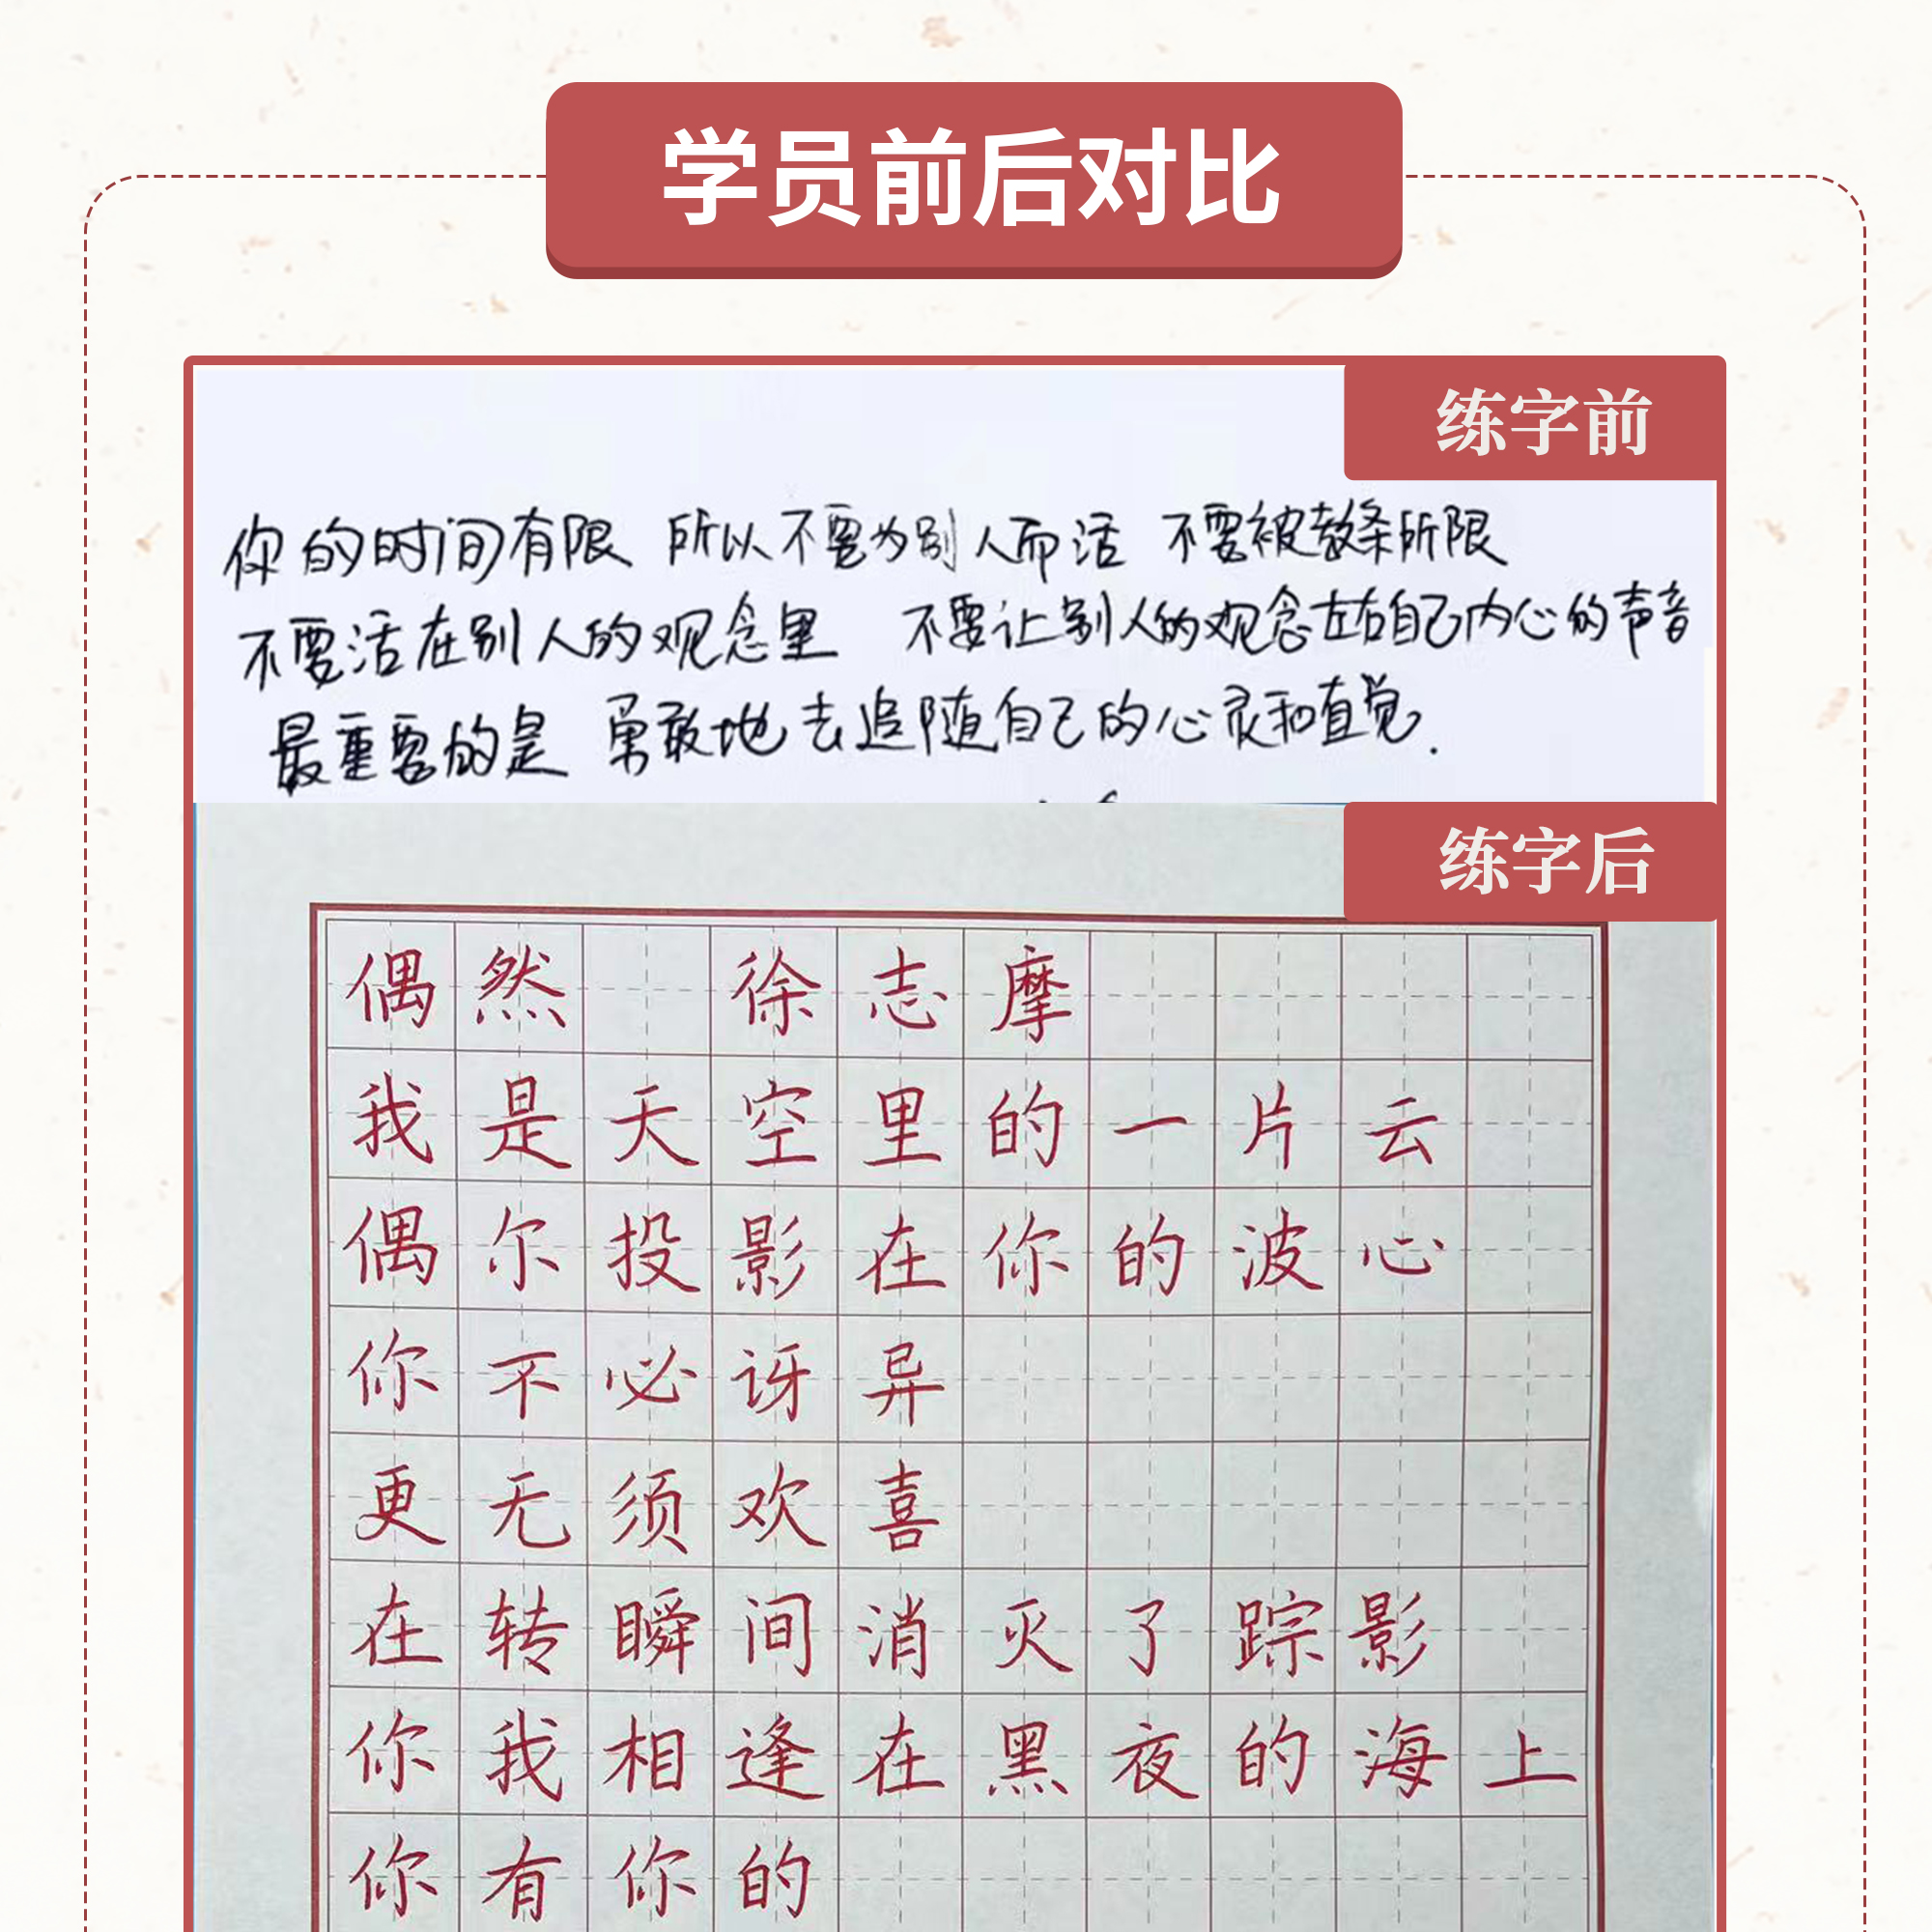 学员前后对比
练字前
你的时间有限 所以不要为别人而活 不要被教条所限
不要活在别人的观念里 不要让别人的观念左右自己内心的声音
最重要的是 勇敢地去追随自己的心灵和直觉.
练字后
偶然 徐志摩
我是天空里的一片云
偶尔投影在你的波心
你不必讶异
更无须欢喜
在转瞬间消灭了踪影
你我相逢在黑夜的海上
你有你的